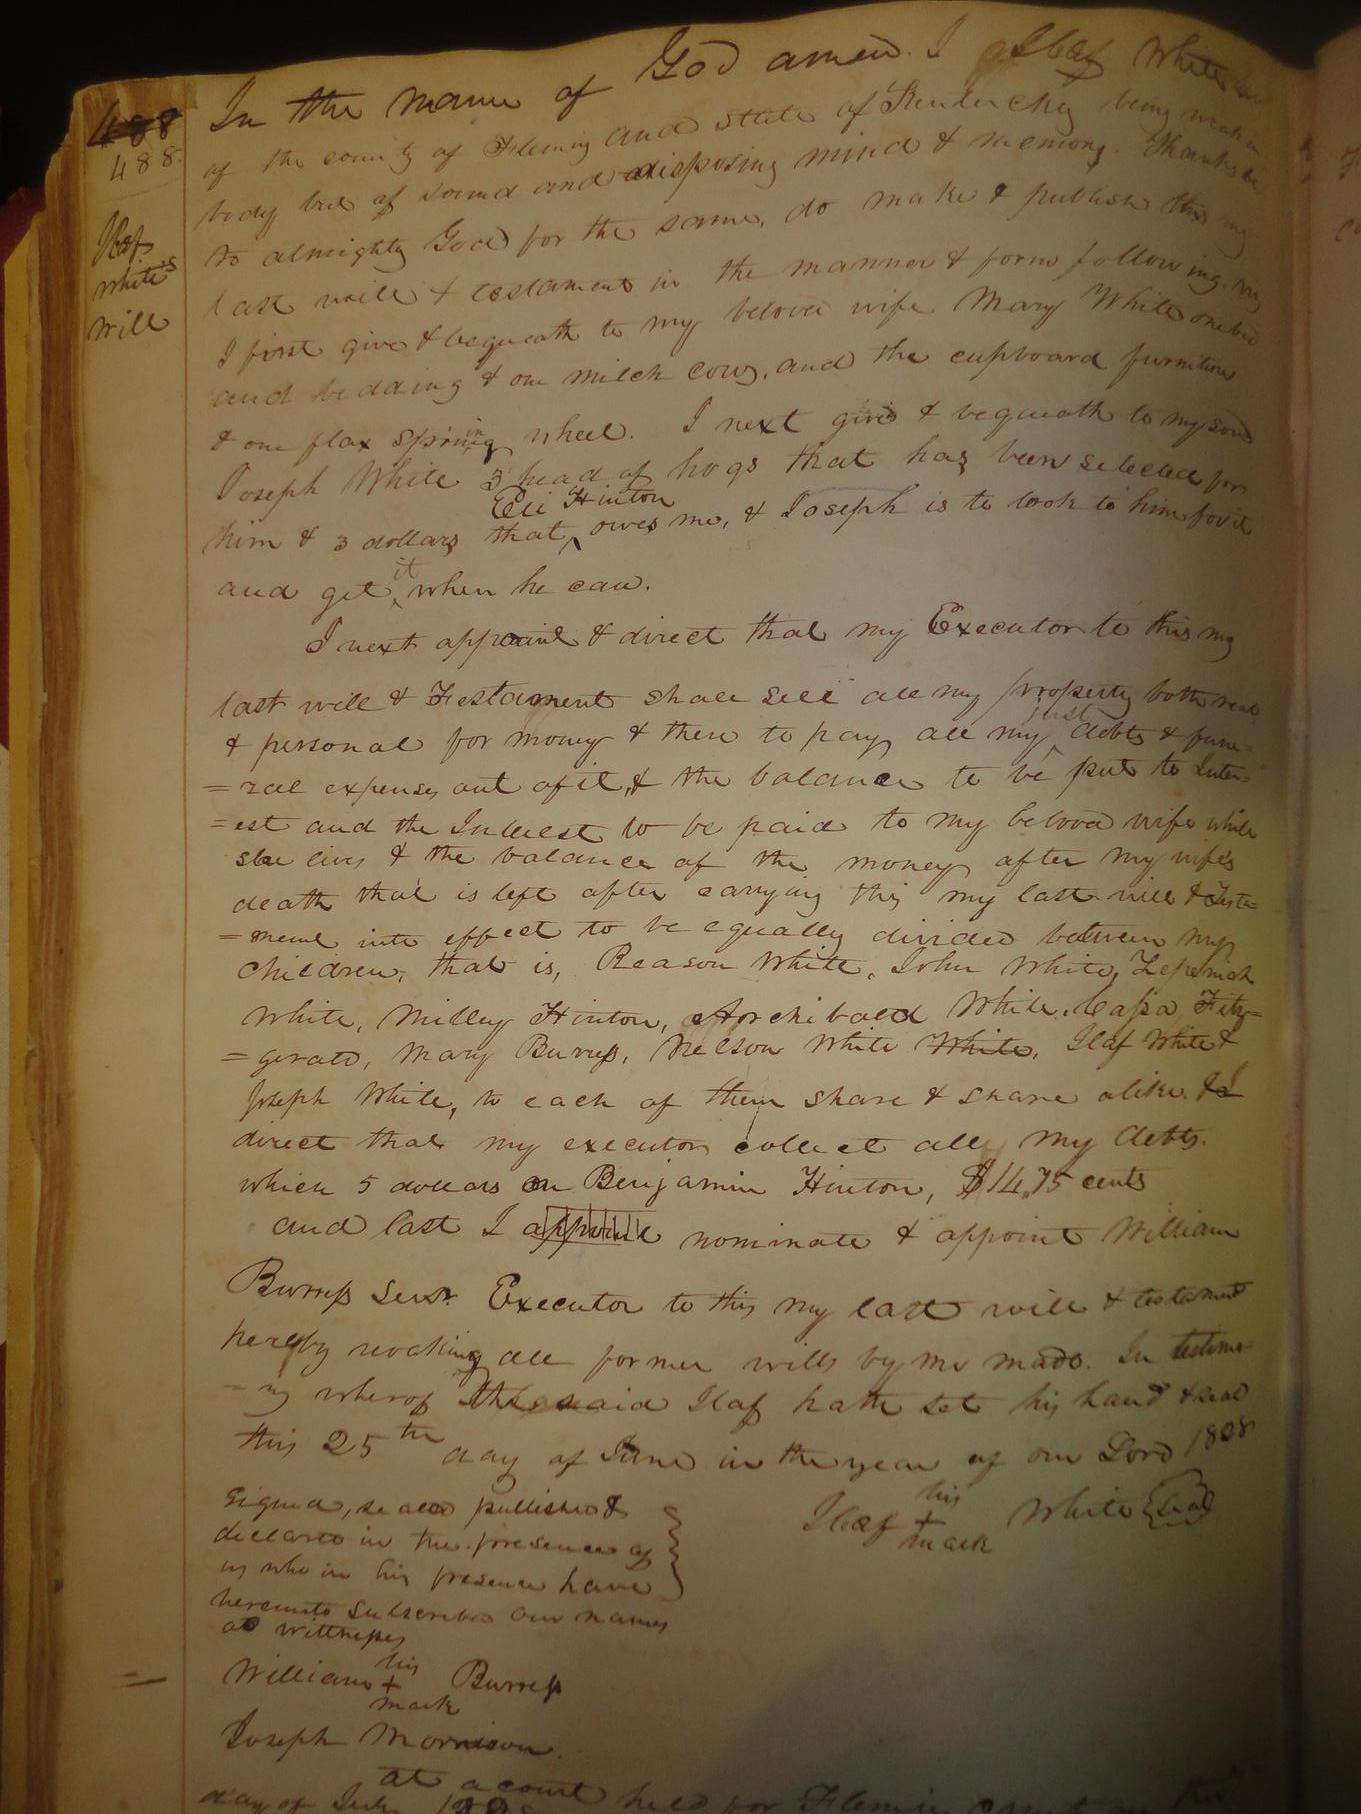 In the name of God amen. I Ilaf White
488
488
Ilaf
white's
will
of the county of Fleming and state of Kentucky being weak in
body but of sound and disposing mind & memory. Thanks be
to almighty God for the same, do make & publish this my
last will & testament in the manner & form following. viz
I first give & bequeath to my beloved wife Mary White one bed
and bedding & one milch cow, and the cupboard furniture
& one flax spining wheel. I next give & bequeath to my son
Joseph White 3 head of hogs that has been selected for
him & 3 dollars that Eli Hinton owes me, & Joseph is to look to him for it
and get it when he can.
I next appoint & direct that my Executor to this my
last will & Testament shall sell all my property both real
& personal for money & then to pay all my just debts & fune-
=ral expenses out of it, & the balance to be put to Inter=
=est and the Interest to be paid to my beloved wife while
she lives & the balance of the money after my wife's
death that is left after carrying this my last will & Testa=
=ment into effect to be equally divided between my
children, that is, Reason White, John White, Zepeniah
White, Milley Hinton, Archibald White, Cassa Fitz=
=gerald, Mary Burress, Nelson White White, Ilaf White &
Joseph White, to each of them share & share alike. & I
direct that my executor collect all my debts.
which 5 dollars on Benjamin Hinton, $14,75 cents
and last I appoint nominate & appoint William
Burress Senr. Executor to this my last will & testament
hereby revoking all former wills by me made. In testimo-
=ny wherof the said Ilaf hath set his hand & seal
this 25th day of June in the year of our Lord 1828
Signed, sealed published &
declared in the presence of
us who in his presence have
hereunto subscribed our names
as wittnesses
Ilaf his + mark White (Seal)
William his + mark Burress
Joseph Morrison
at a court held for Fleming County the
day of July